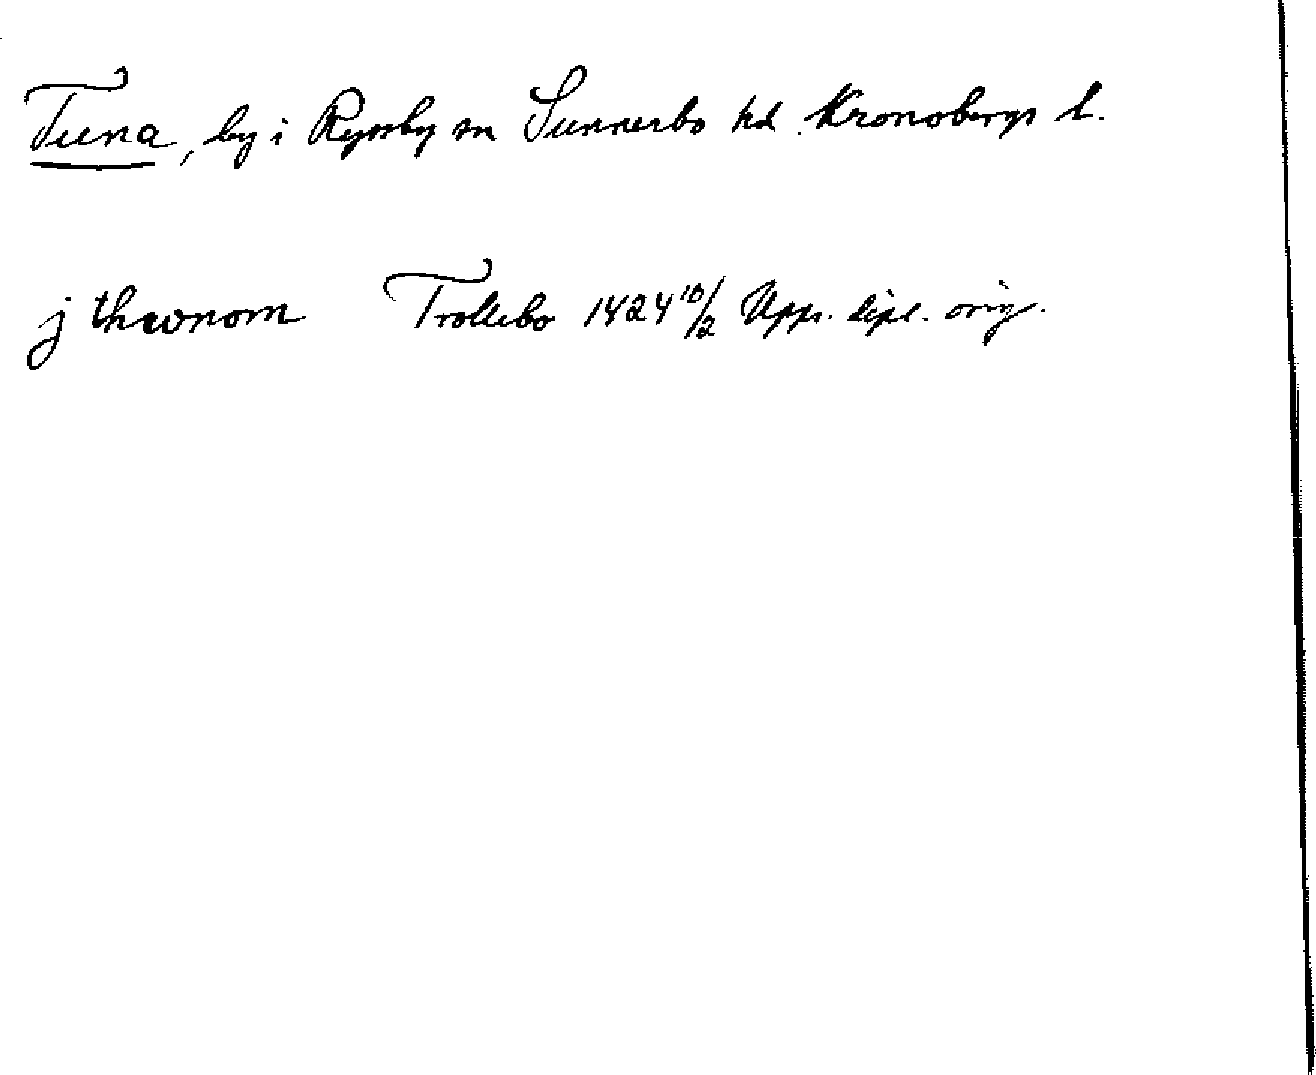 Tuna, by i Ryssby sn Sunnerbo hd Kronobergs l.
j thwnom Trollebo 1424 10/2 Upps. dipl. orig.